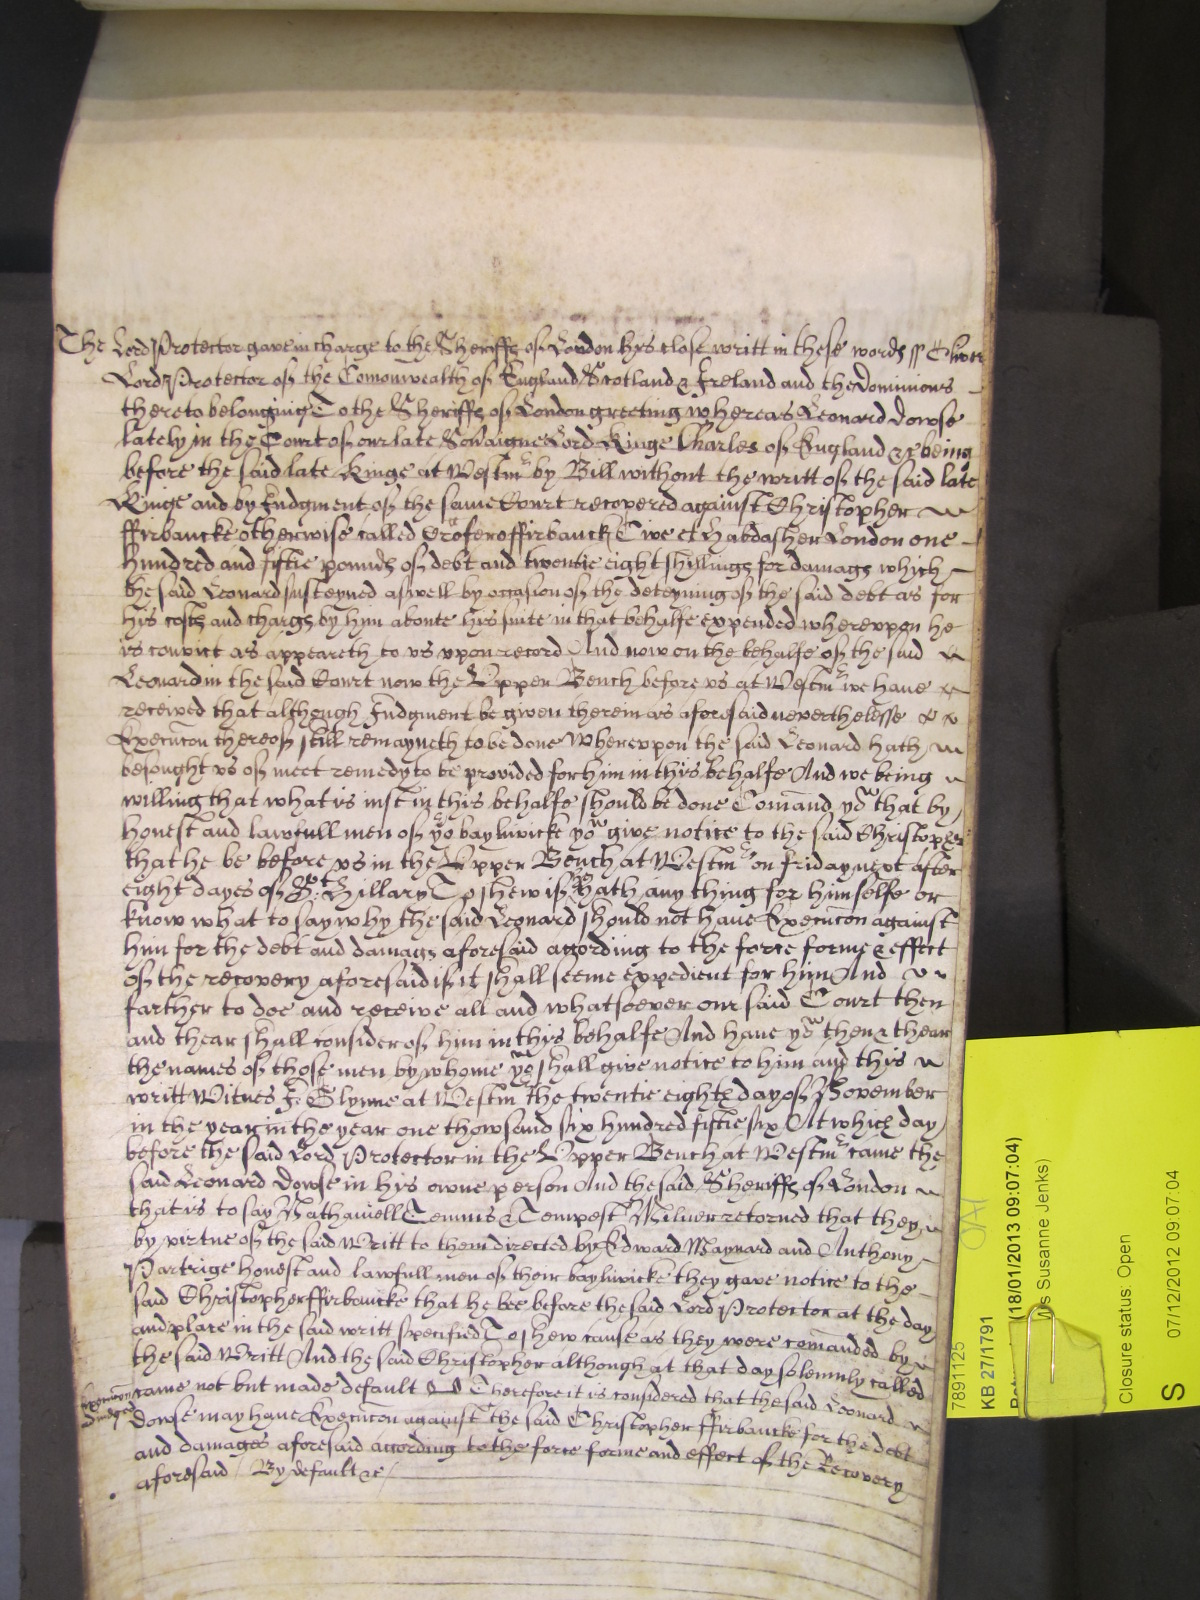 The Lord Protector gave in charge to the Sheriffs of London hys close writt in these words ss Oliver
Lord Protector of the Comonwealth of England Scotland & Ireland and the Dominions
thereto belonging To the Sheriffs of London greeting whereas Leonard Dowse
lately in the Court of our late Sovaigne Lord Kinge Charles of England &c being
before the said late Kinge at Westmr by Bill without the writt of the said late
Kinge and by Judgment of the same Court recovered against Christopher
ffirbancke otherwise called Crofer ffirbanck Citizen et Habdasher London one
hundred and fiftie pounds of debt and twentie eight shillings for damags which
the said Leonard susteyned aswell by occasion of the deteyning of the said debt as for
hys costs and chargs by him aboute hys suite in that behalfe expended wherevpon he
is convict as appeareth to vs vpon record And now on the behalfe of the said
Leonard in the said Court now the Vpper Bench before vs at Westmr we have
received that although Judgment be given therein as aforesaid neverthelesse
Execucon thereof still remayneth to be done Wherevpon the said Leonard hath
besought vs of meet remedy to be provided for him in thys behalfe And we being
willing that what is iust in this behalfe should be done Comand you that by
honest and lawfull men of yor bayliwicke you give notice to the said Christopher
that he be before vs in the Vpper Bench at Westmr on friday next after
eight dayes of St Hillary To shew if he hath any thing for himselfe or
know what to say why the said Leonard should not have Execucon against
him for the debt and damags aforesaid according to the force forme & effect
of the recovery aforesaid if it shall seeme expedient for him And
farther to doe and receive all and whatsoever our said Court then
and thear shall consider of him in thys behalfe And have you then & thear
the names of those men by whome you shall give notice to him and this
writt Witnes J: Glynne at Westmr the twentie eighth day of November
in the year in the year one thowsand six hundred fiftie six At which day
before the said Lord Protector in the Vpper Bench at Westmr came the
said Leonard Dowse in hys owne person And the said Sheriffs of London
that is to say Nathaniell Temms & Tempest Milner retorned that they
by virtue of the said Writt to them directed by Edward Maynard and Anthony
Partrige honest and lawfull men of their bayliwicke they gave notice to the
said Christopher ffirbancke that he bee before the said Lord Protector at the day
and place in the said writt specified To shew cause as they were comanded by
the said Writt And the said Christopher although at that day solemnly called
came not but made default Therefore it is considered that the said Leonard
Execucon
Dowse may have Execucon against the said Christopher ffirbancke for the debt
and damages aforesaid according to the force forme and effect of the Recovery
aforesaid / By default &c /
7891125
KB 27/1791
(18/01/2013 09:07:04)
Ms Susanne Jenks)
Closure status: Open
S
07/12/2012 09:07:04